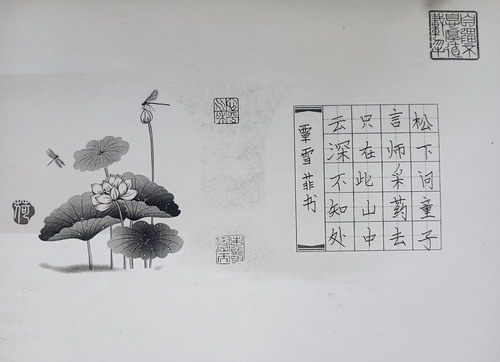 松下问童子
言师采药去
只在此山中
云深不知处
覃雪菲书
荷